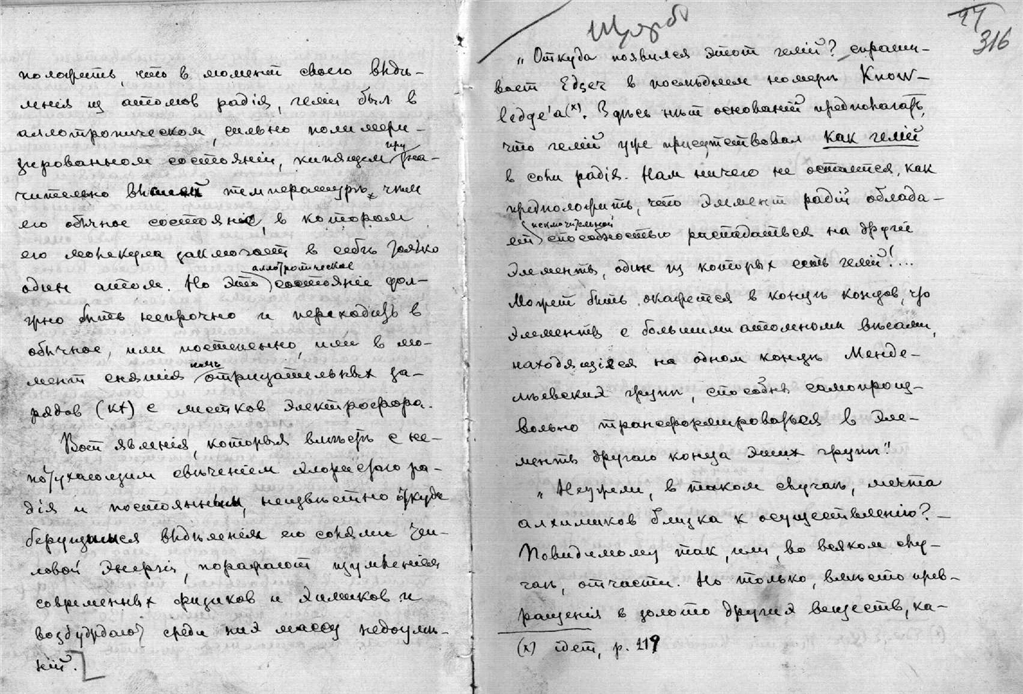 положить, что в момент своего выдѣ-
ления из атомов радія, гелій был в
аллотропическом, сильно полимери-
зированном состояніи, кипящем при зна-
чительно высшей температурѣ, чѣм
его обычное состояніе, в котором
его молекула заключает в себѣ только
один атом. Но это аллотропическое состояніе дол-
жно быть непрочно и переходить в
обычное, или постепенно, или в мо-
мент снятія нами отрицательных за-
рядов с листков электрофора.
Вот явленія, которыя вмѣстѣ с не-
потухающим свѣченіем хлористаго ра-
дія и постоянным, неизвѣстно откуда
берущимся выдѣленіем его солями теп-
ловой энергіи, поражают изумленіем
современных физиков и химиков и
возбуждают среди них массу недоумѣ-
ній.]
27
316
„Откуда появился этот гелій? спраши-
вает в послѣднем номерѣ Know-
ledge'а (x). Здѣсь нѣт основаній предполагать,
что гелій уже присутствовал как гелій
в соли радія. Нам ничего не остается, как
предположить, что элемент радій облада-
ет исключительной способностью распадаться на другіе
элементы, один из которых есть гелій!...
Может быть окажется в концѣ концов, что
элементы с большими атомными вѣсами,
находящіяся на одном концѣ Менде-
лѣевских групп, способны самопроиз-
вольно трансформироваться в эле-
менты другаго конца этих групп"
„Неужели, в таком случаѣ, мечта
алхимиков близка к осуществленію?—
Повидимому так, или, во всяком слу-
чаѣ, отчасти. Но только, вмѣсто прев-
ращенія в золото других веществ, ка-
(x) idem, p. 119